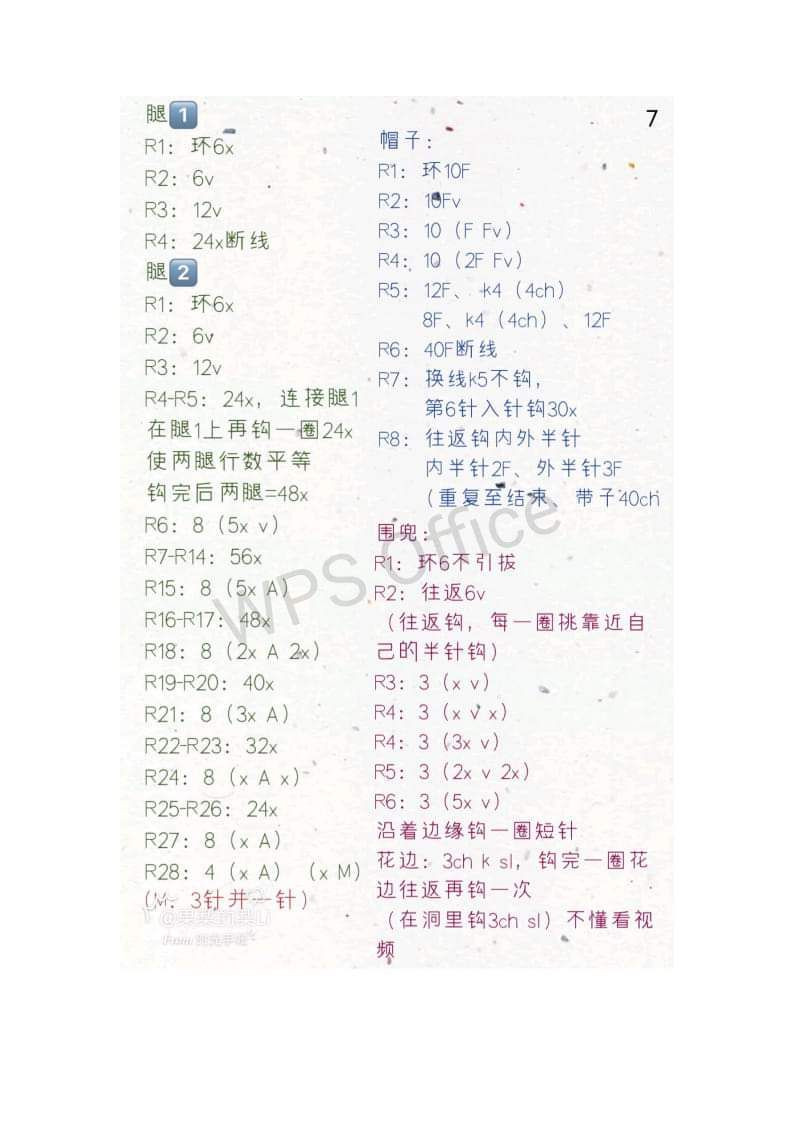 7
腿1
R1：环6x
R2：6v
R3：12v
R4：24x断线
腿2
R1：环6x
R2：6v
R3：12v
R4-R5：24x，连接腿1
在腿1上再钩一圈24x
使两腿行数平等
钩完后两腿=48x
R6：8（5x v）
R7-R14：56x
R15：8（5x A）
R16-R17：48x
R18：8（2x A 2x）
R19-R20：40x
R21：8（3x A）
R22-R23：32x
R24：8（x A x）
R25-R26：24x
R27：8（x A）
R28：4（x A）（x M）
(M：3针并一针)
帽子：
R1：环10F
R2：10Fv
R3：10（F Fv）
R4：10（2F Fv）
R5：12F、k4（4ch）
8F、k4（4ch）、12F
R6：40F断线
R7：换线k5不钩，
第6针入针钩30x
R8：往返钩内外半针
内半针2F、外半针3F
（重复至结束、带子40ch
围兜：
R1：环6不引拔
R2：往返6v
（往返钩，每一圈挑靠近自
己的半针钩）
R3：3（x v）
R4：3（x v x）
R4：3（3x v）
R5：3（2x v 2x）
R6：3（5x v）
沿着边缘钩一圈短针
花边：3ch k sl，钩完一圈花
边往返再钩一次
（在洞里钩3ch sl）不懂看视
频
WPS Office